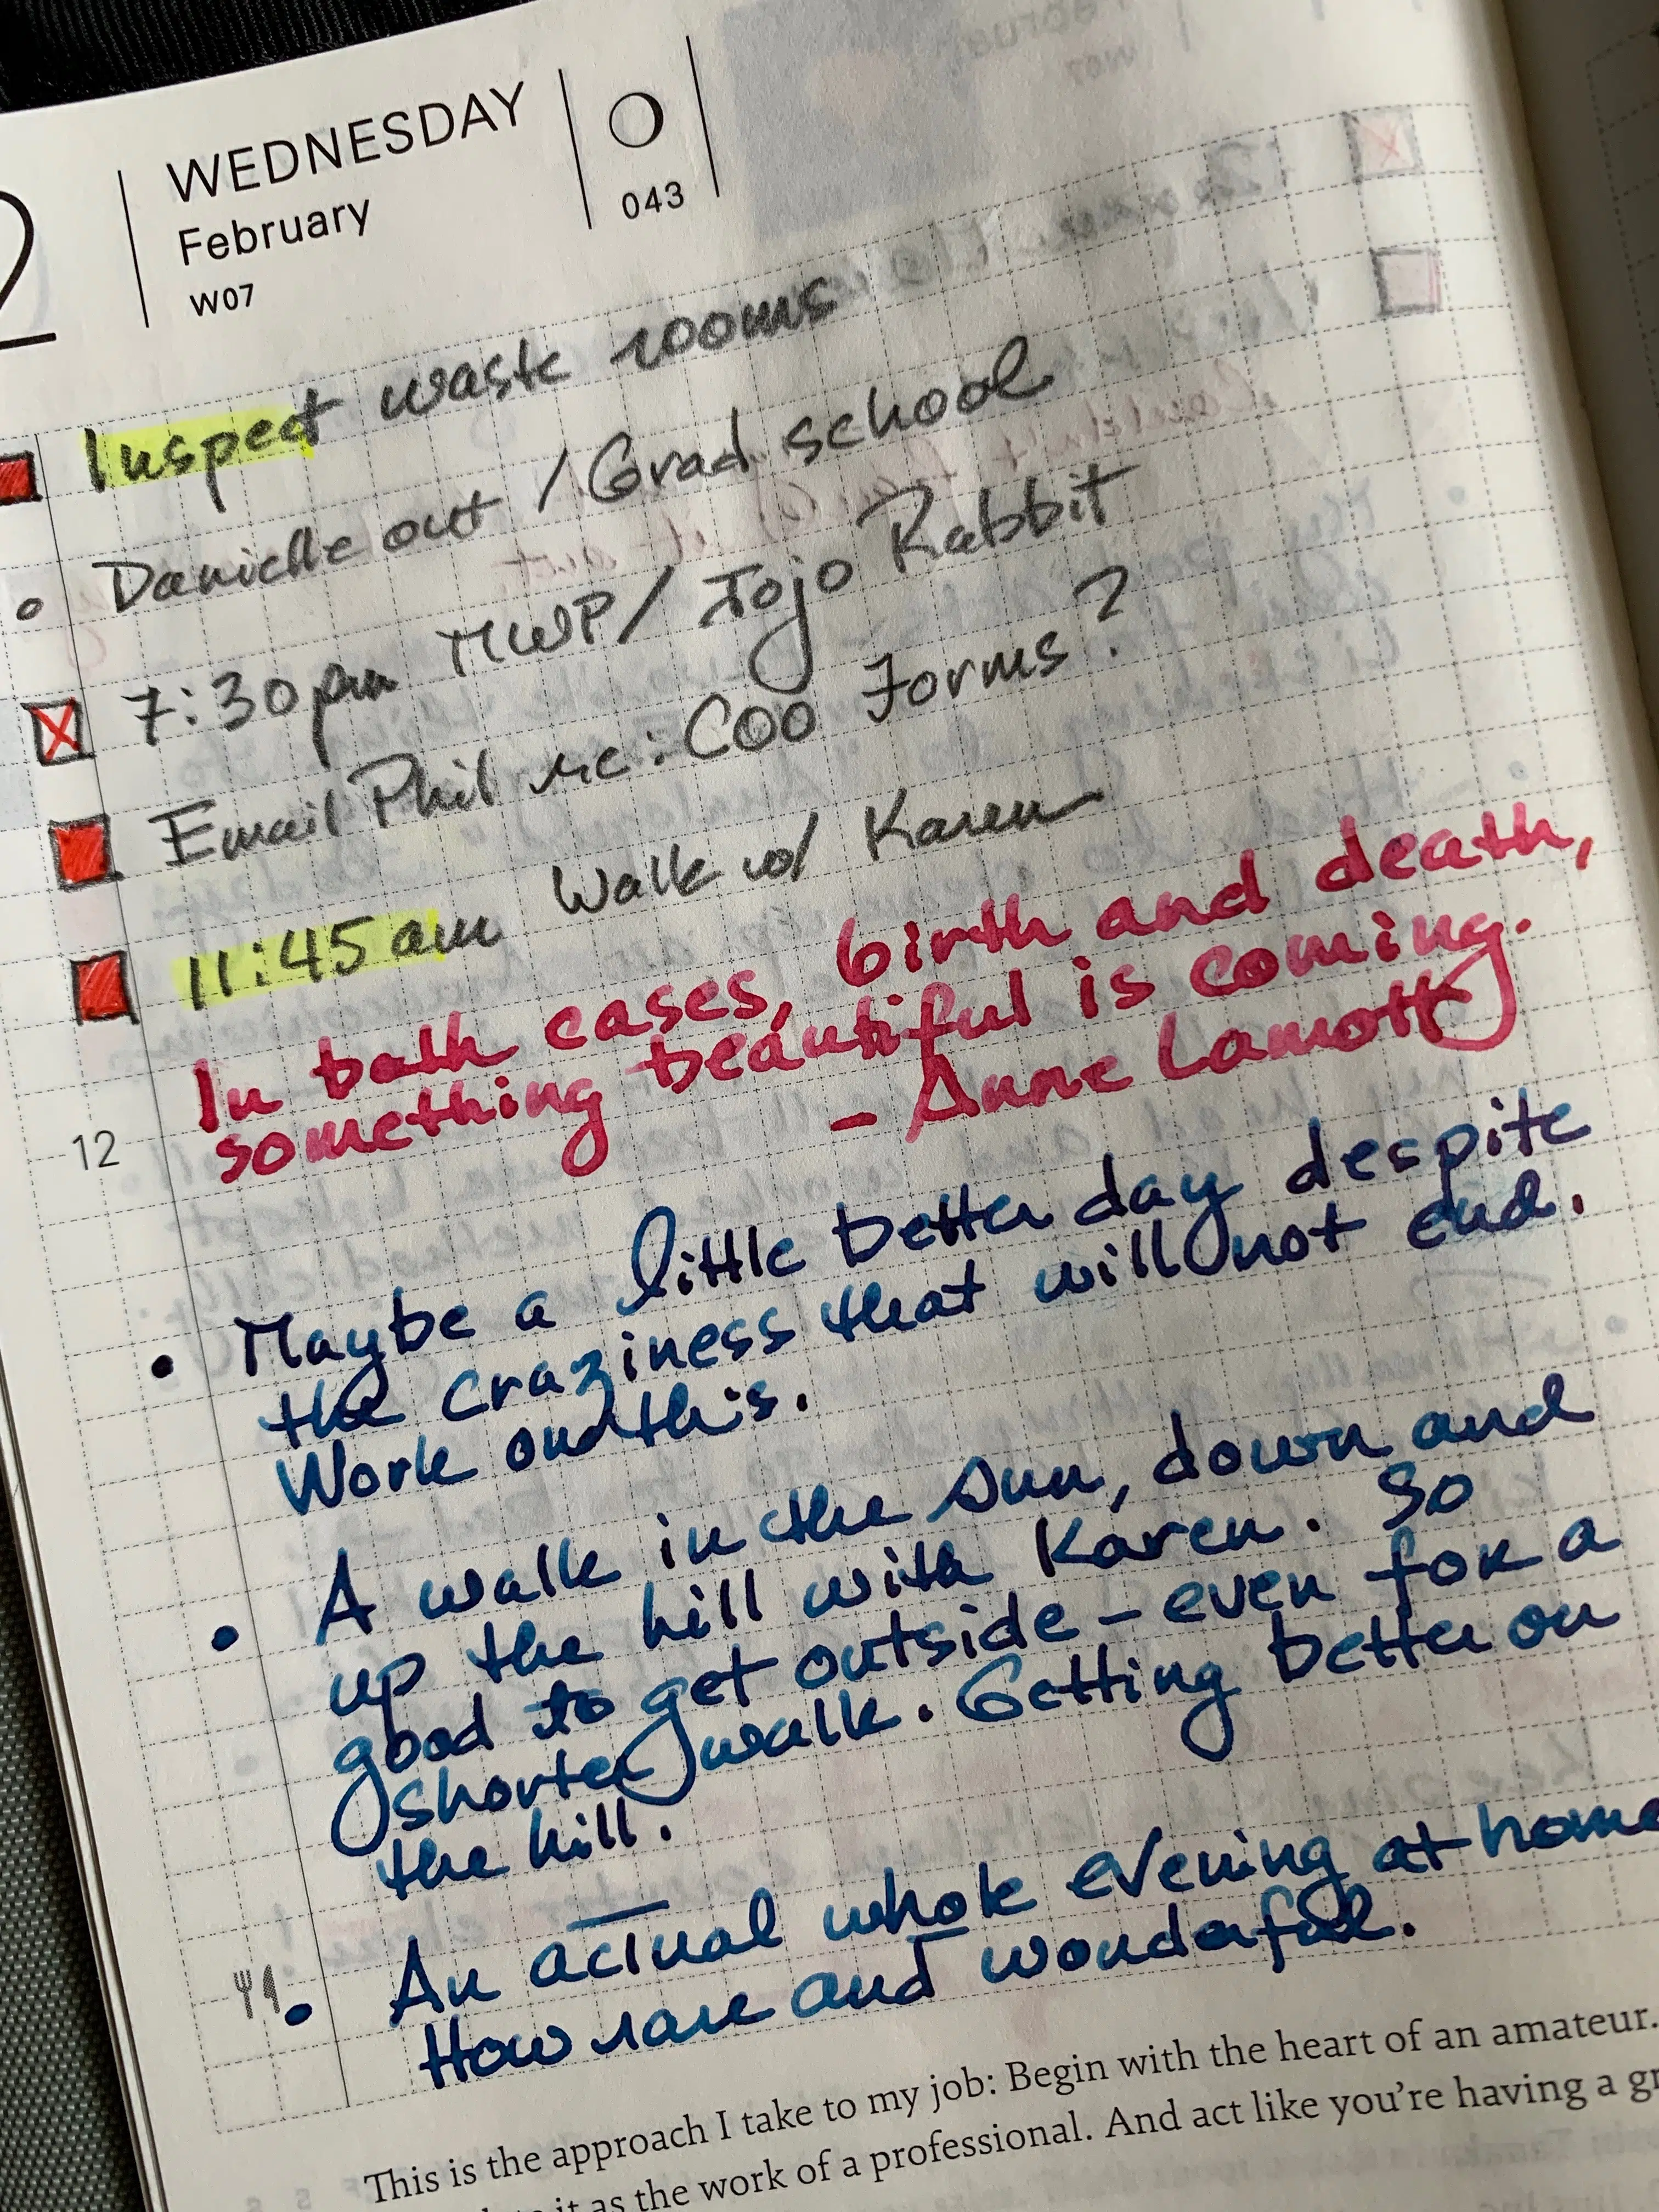 2
WEDNESDAY
February
W07
043
Inspect waste rooms
Danielle out / Grad school
7:30pm MWP/ Jojo Rabbit
Email Phil re: COO Forms?
11:45 am Walk w/ Karen
In both cases, birth and death,
something beautiful is coming.
- Anne Lamott
12
• Maybe a little better day despite
the craziness that will not end.
Work on this.
• A walk in the sun, down and
up the hill with Karen. So
good to get outside – even for a
shorter walk. Getting better on
the hill.
• An actual whole evening at home
How rare and wonderful.
This is the approach I take to my job: Begin with the heart of an amateur.
it as the work of a professional. And act like you're having a